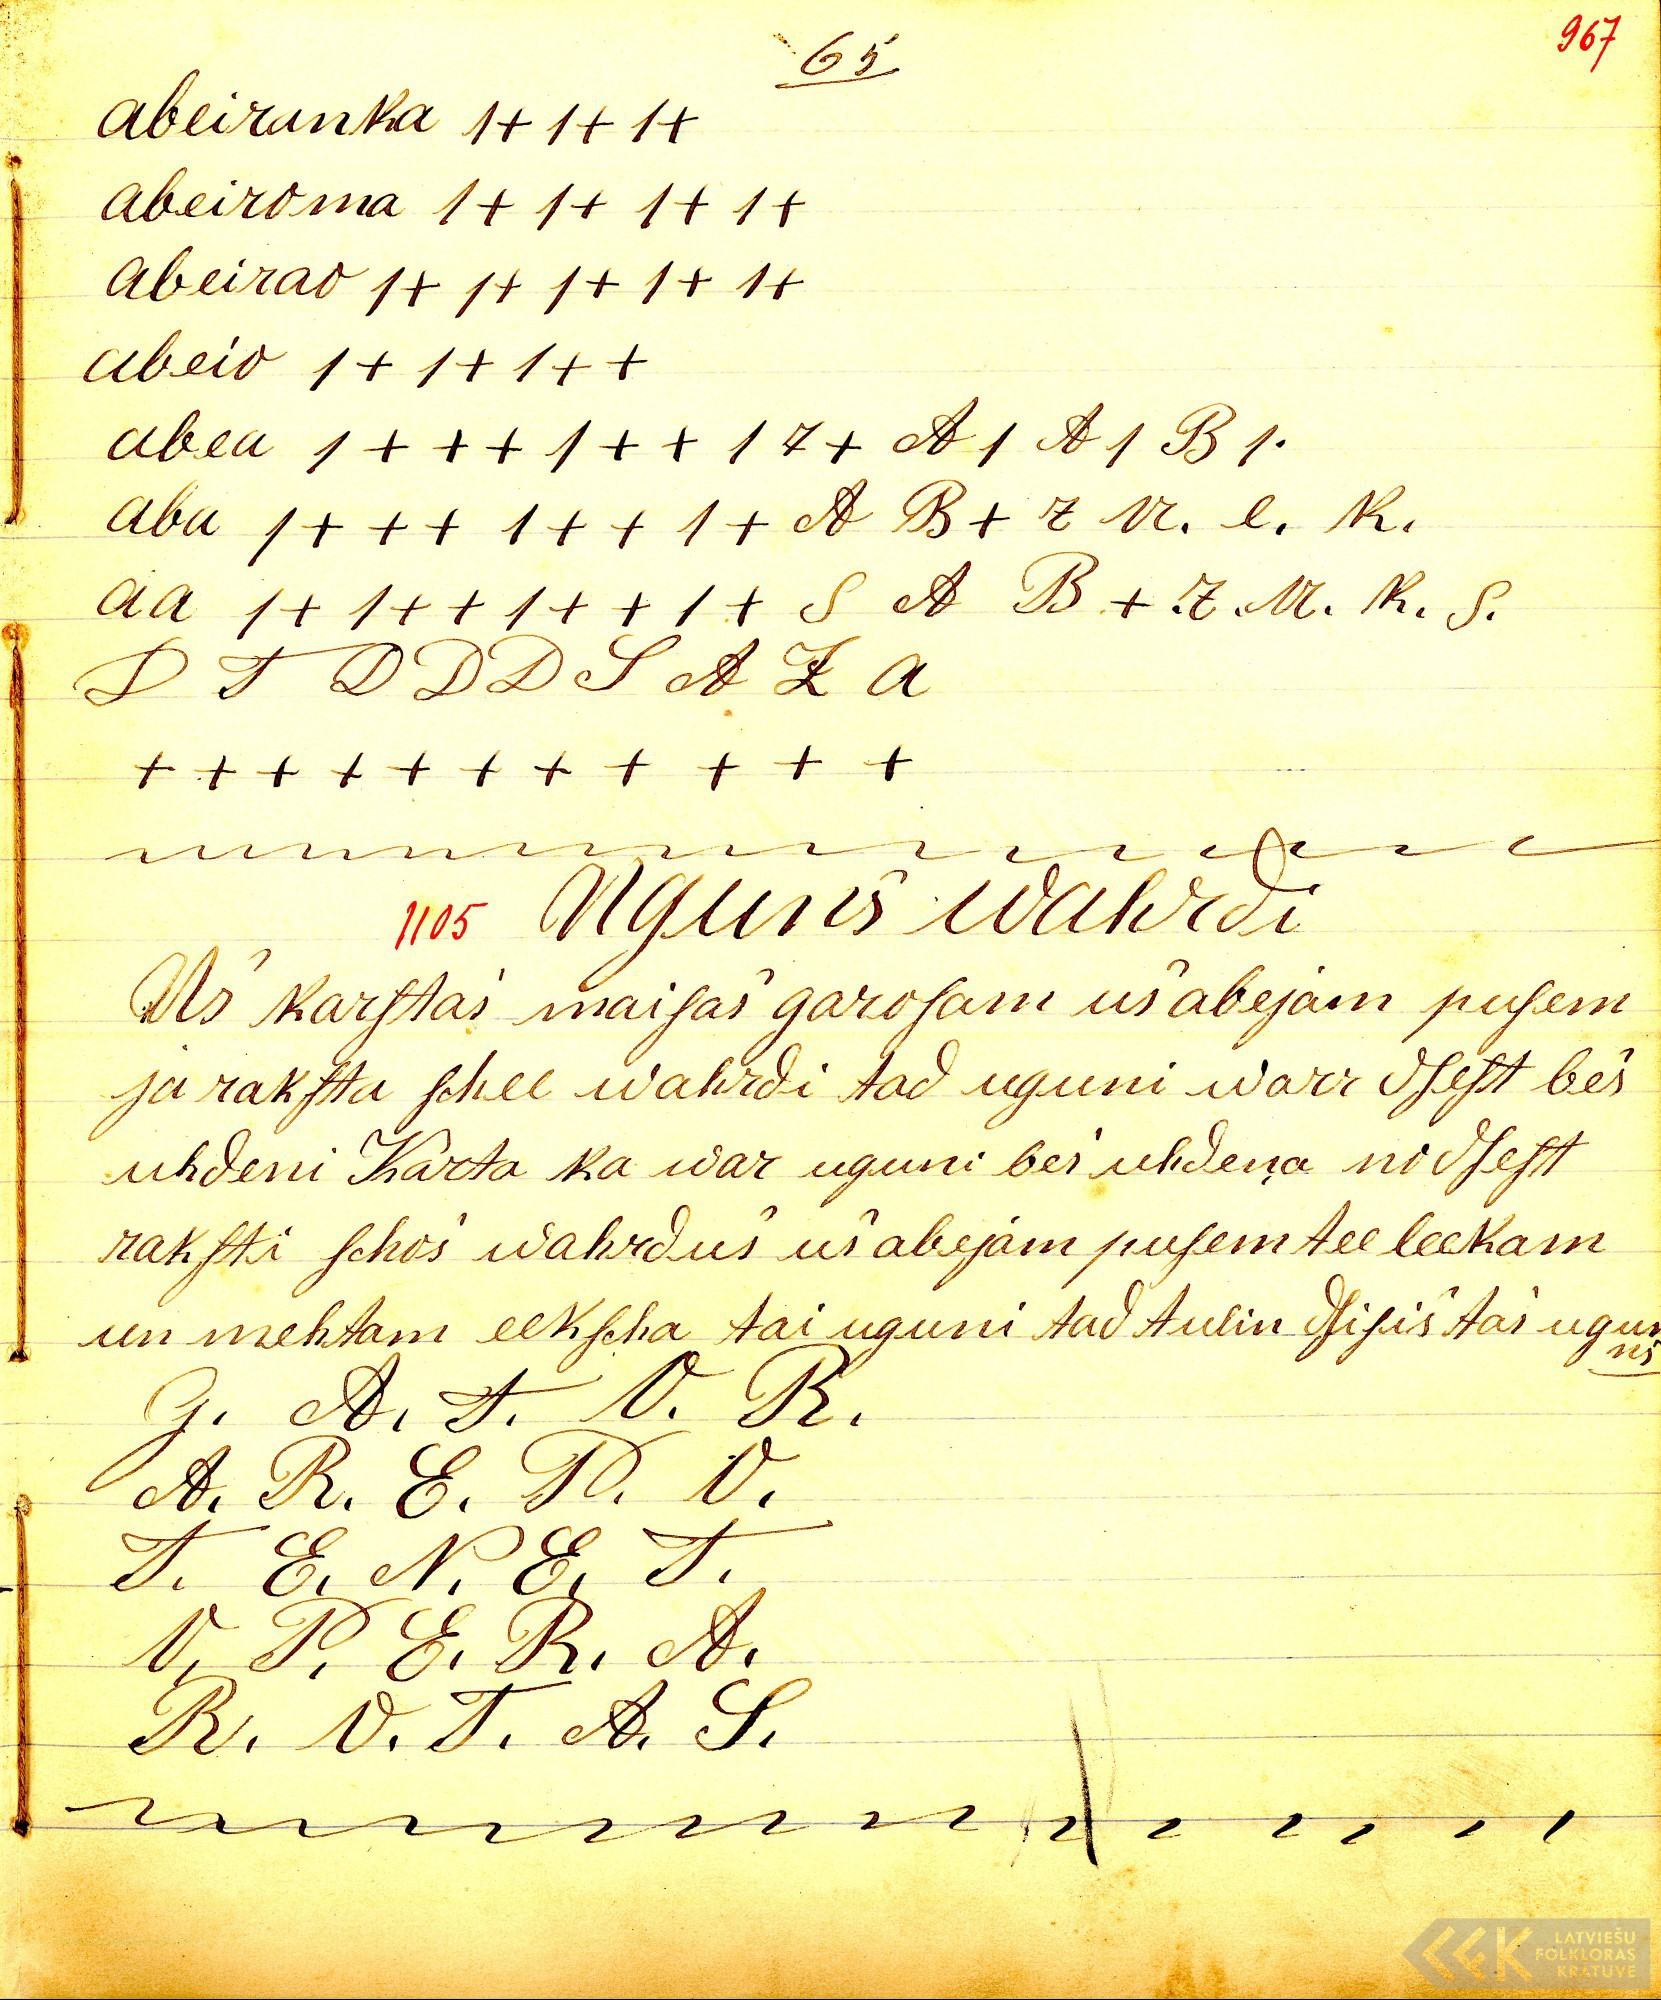 967
65
abeiranka 1+ 1+ 1+
abeiroma 1+ 1+ 1+ 1+
abeirao 1+ 1+ 1+ 1+ 1+
abeio 1+ 1+ 1++
abea 1+++ 1++ 1 z+ A 1 A 1 B 1.
aba 1+++ 1++ 1+ A B+ z M. e. k.
aa 1+ 1++ 1++ 1+ S A B + .z .M. k. S.
D T D D D S A Z a
+ + + + + + + + + + +
1105 Uguns wahrdi
Us karſtas maiſas garoſam us abejam puſem
ja rakſta ſchee wahrdi tad uguni warr dſeſt bes
uhdeni Karta ka war uguni bes uhdeņa nodſeſt
rakſti ſchos wahrdus us abejam puſem tee leekam
un mehtam eekſcha tai uguni tad tulin dſiſis tas ugun
ns
G. A. T. O. R.
A. R. E. P. O.
T. E. N. E. T.
O. P. E. R. A.
R. O. T. A. S.
LATVIEŠU
FOLKLORAS
KRĀTUVE